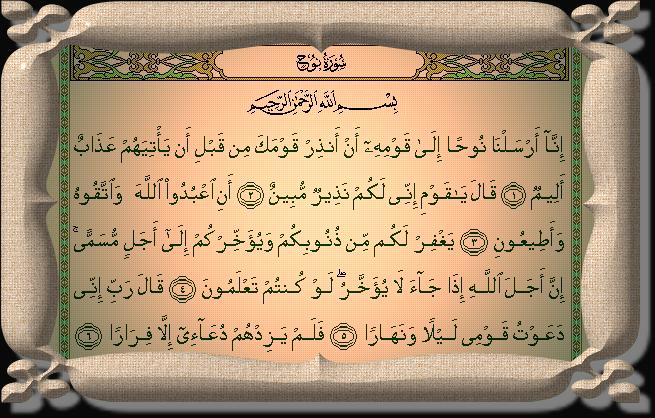 سُورَةُ نُوحٍ
بِسْمِ اللَّهِ الرَّحْمَٰنِ الرَّحِيمِ
إِنَّآ أَرْسَلْنَا نُوحًا إِلَىٰ قَوْمِهِۦٓ أَنْ أَنذِرْ قَوْمَكَ مِن قَبْلِ أَن يَأْتِيَهُمْ عَذَابٌ
أَلِيمٌ ١ قَالَ يَـٰقَوْمِ إِنِّى لَكُمْ نَذِيرٌ مُّبِينٌ ٢ أَنِ ٱعْبُدُوا۟ ٱللَّهَ وَٱتَّقُوهُ
وَأَطِيعُونِ ٣ يَغْفِرْ لَكُم مِّن ذُنُوبِكُمْ وَيُؤَخِّرْكُمْ إِلَىٰٓ أَجَلٍ مُّسَمًّى ۚ
إِنَّ أَجَلَ ٱللَّهِ إِذَا جَآءَ لَا يُؤَخَّرُ ۖ لَوْ كُنتُمْ تَعْلَمُونَ ٤ قَالَ رَبِّ إِنِّى
دَعَوْتُ قَوْمِى لَيْلًا وَنَهَارًا ٥ فَلَمْ يَزِدْهُمْ دُعَآءِىٓ إِلَّا فِرَارًا ٦